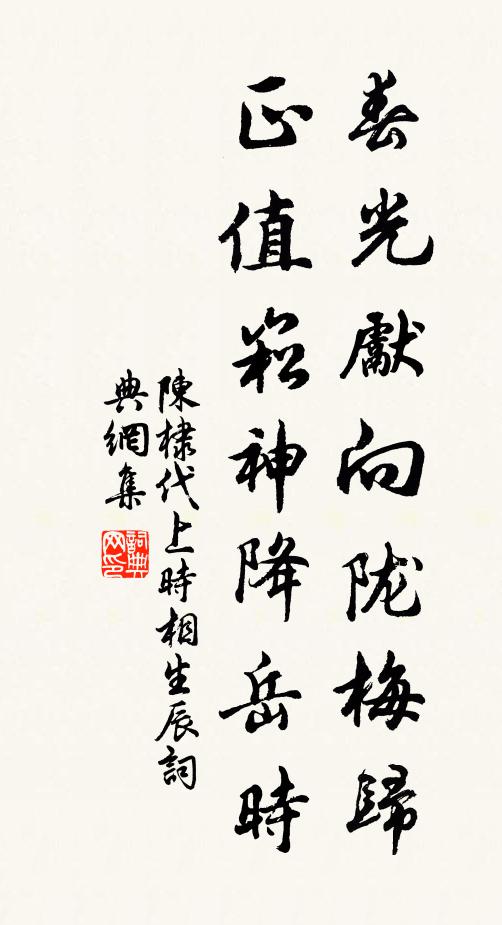 春光獻向陇梅歸
正值崧神降岳時
陳棣代上時相生辰詞
典網集
詞典网印